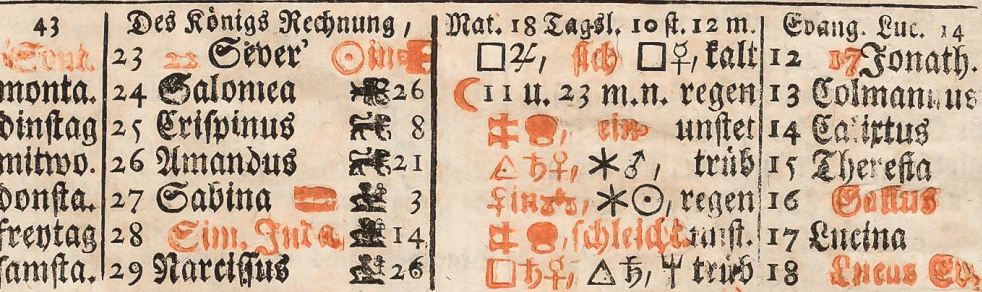 43 Des Königs Rechnung, Mat. 18 Tagsl. 10 st. 12 m. Evang. Luc. 14
Sont. 23 22 Sever' ☉ in □♃, sich □♀, kalt 12 17 Jonath.
monta. 24 Salomea 26 ☾ 11 u. 23 m. n. regen 13 Colmannus
dinstag 25 Crispinus 8 ein unstet 14 Calixtus
mitwo. 26 Amandus 21 △♄♀, ⚹♂, trüb 15 Theresia
donsta. 27 Sabina 3 ⚹☉, regen 16 Gallus
freytag 28 Sim. Juda 14 schleicht unst. 17 Lucina
samsta. 29 Narcissus 26 □♄♀, △♄, trüb 18 Lucus Ev.